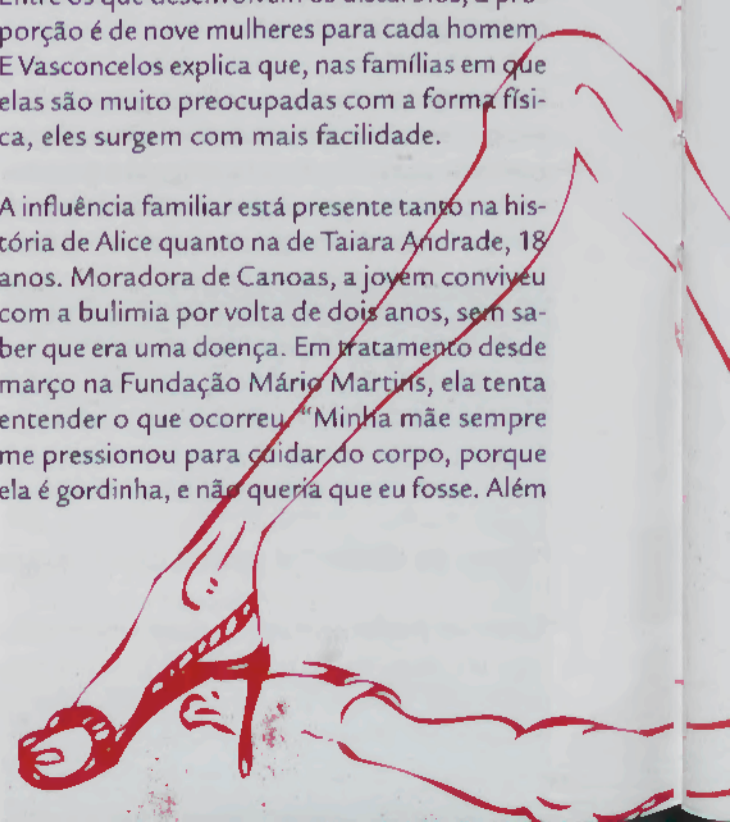 porção é de nove mulheres para cada homem.
E Vasconcelos explica que, nas famílias em que
elas são muito preocupadas com a forma físi-
ca, eles surgem com mais facilidade.
A influência familiar está presente tanto na his-
tória de Alice quanto na de Taiara Andrade, 18
anos. Moradora de Canoas, a jovem conviveu
com a bulimia por volta de dois anos, sem sa-
ber que era uma doença. Em tratamento desde
março na Fundação Mário Martins, ela tenta
entender o que ocorreu. “Minha mãe sempre
me pressionou para cuidar do corpo, porque
ela é gordinha, e não queria que eu fosse. Além